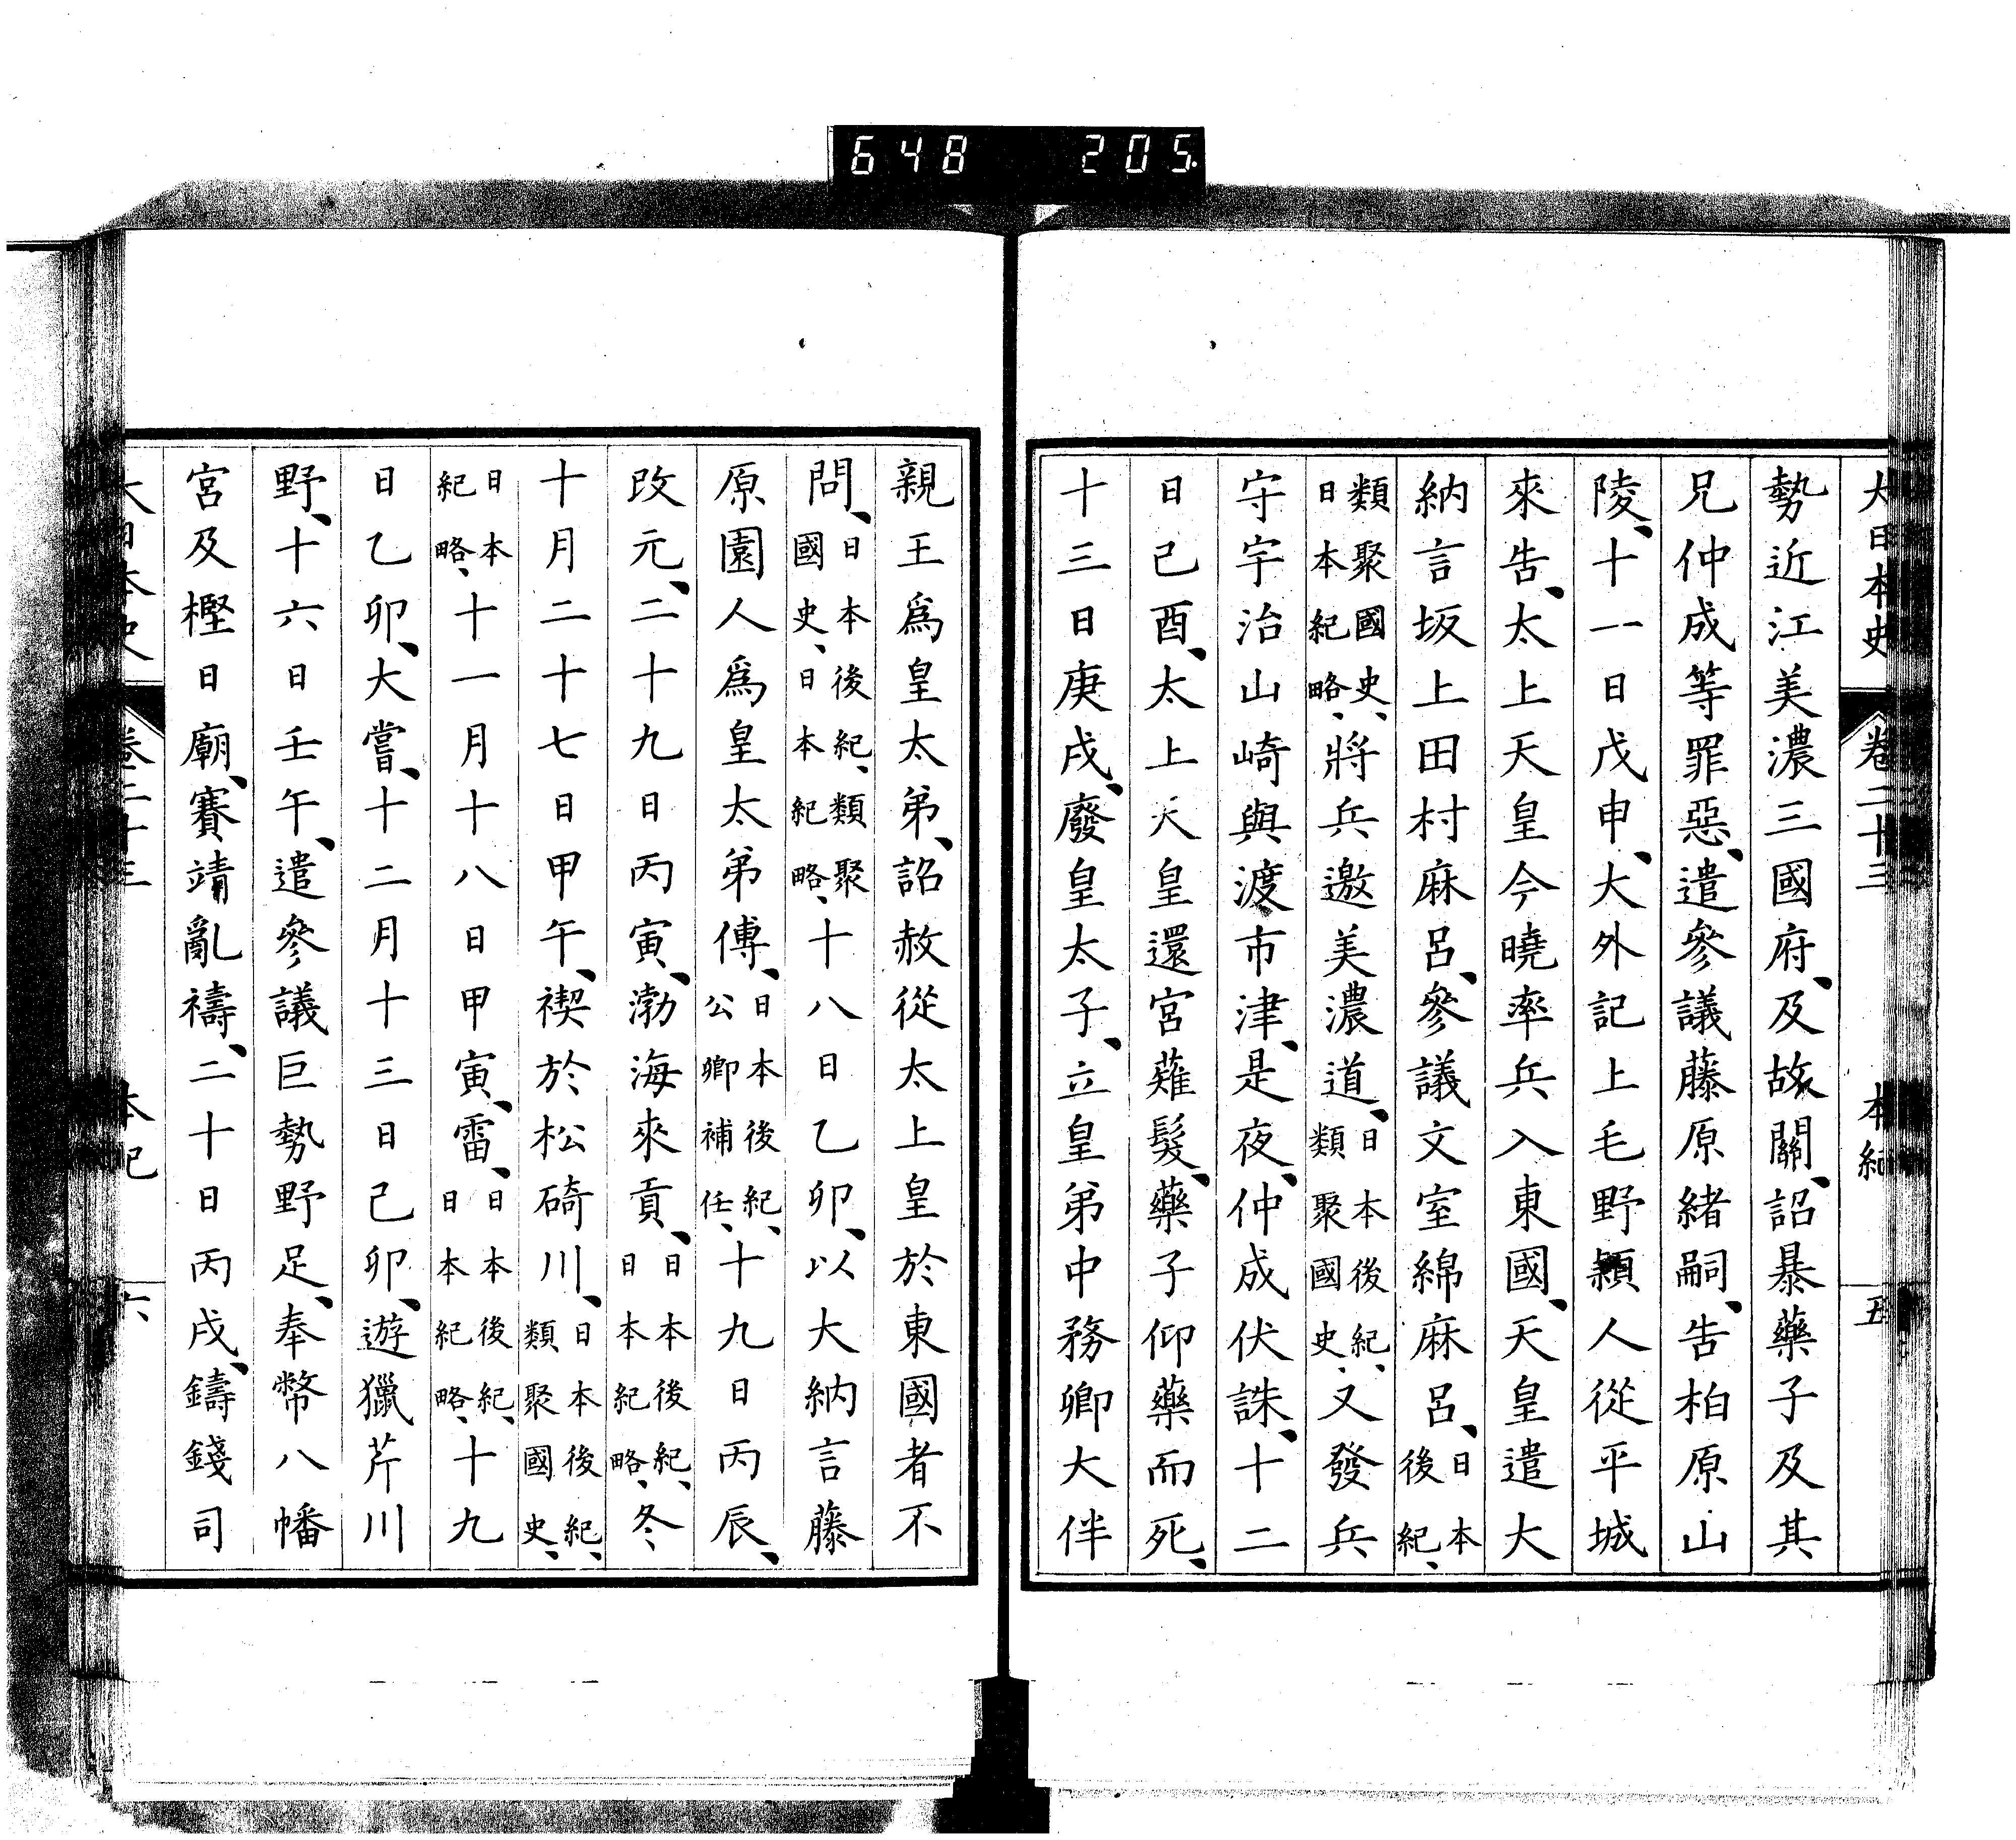 648 205.
大日本史 卷二十三 本紀 五
勢近江美濃三國府、及故關、詔暴藥子及其
兄仲成等罪惡、遣參議藤原緒嗣、告柏原山
陵、十一日戊申、大外記上毛野穎人從平城
來告、太上天皇今曉率兵入東國、天皇遣大
納言坂上田村麻呂、參議文室綿麻呂、日本後紀、
類聚國史、日本紀略、將兵邀美濃道、日本後紀、類聚國史、又發兵
守宇治山崎與渡市津、是夜、仲成伏誅、十二
日己酉、太上天皇還宮薙髮、藥子仰藥而死、
十三日庚戌、廢皇太子、立皇弟中務卿大伴
親王爲皇太弟、詔赦從太上皇於東國者不
問、日本後紀、類聚國史、日本紀略、十八日乙卯、以大納言藤
原園人爲皇太弟傅、日本後紀、公卿補任、十九日丙辰、
改元、二十九日丙寅、渤海來貢、日本後紀、日本紀略、冬
十月二十七日甲午、禊於松碕川、日本後紀、類聚國史、
日本紀略、十一月十八日甲寅、雷、日本後紀、日本紀略、十九
日乙卯、大嘗、十二月十三日己卯、遊獵芹川
野、十六日壬午、遣參議巨勢野足、奉幣八幡
宮及樫日廟、賽靖亂禱、二十日丙戌、鑄錢司
大日本史 卷二十三 本紀 六